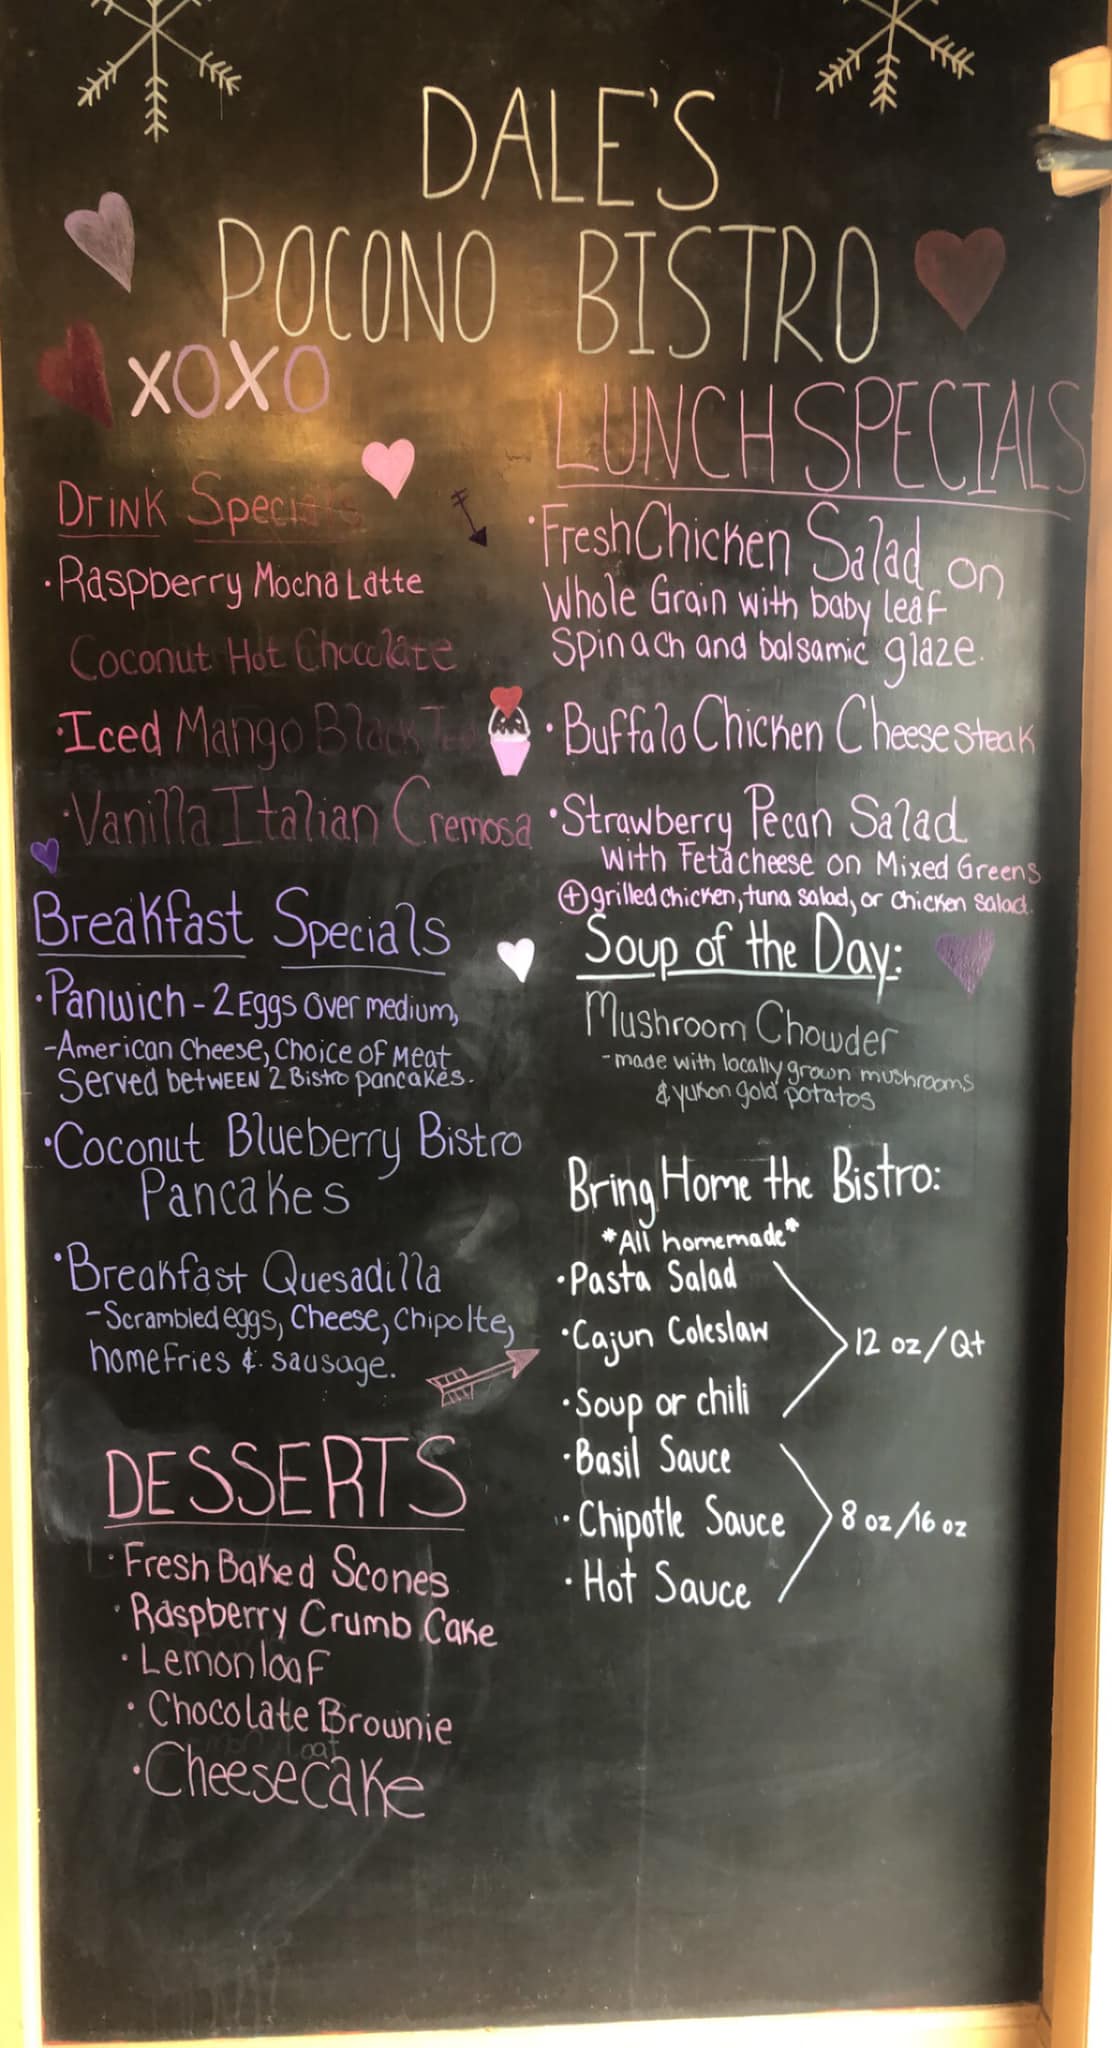 DALE'S
POCONO BISTRO
XOXO
Drink Specials
·Raspberry Mocha Latte
Coconut Hot Chocolate
·Iced Mango Black Tea
·Vanilla Italian Cremosa
Breakfast Specials
·Panwich - 2 Eggs over medium,
-American cheese, choice of meat
Served between 2 Bistro pancakes.
·Coconut Blueberry Bistro
Pancakes
·Breakfast Quesadilla
-Scrambled eggs, Cheese, Chipolte,
homefries & sausage.
DESSERTS
·Fresh Baked Scones
·Raspberry Crumb Cake
·Lemon loaf
·Chocolate Brownie
·Cheesecake
LUNCH SPECIALS
·Fresh Chicken Salad on
Whole Grain with baby leaf
Spinach and balsamic glaze.
·Buffalo Chicken Cheesesteak
·Strawberry Pecan Salad
with Feta cheese on Mixed Greens
⊕ grilled chicken, tuna salad, or chicken salad.
Soup of the Day:
Mushroom Chowder
-made with locally grown mushrooms
& yukon gold potatos
Bring Home the Bistro:
*All homemade*
·Pasta Salad
·Cajun Coleslaw
12 oz/Qt
·Soup or chili
·Basil Sauce
·Chipotle Sauce
8 oz/16 oz
·Hot Sauce